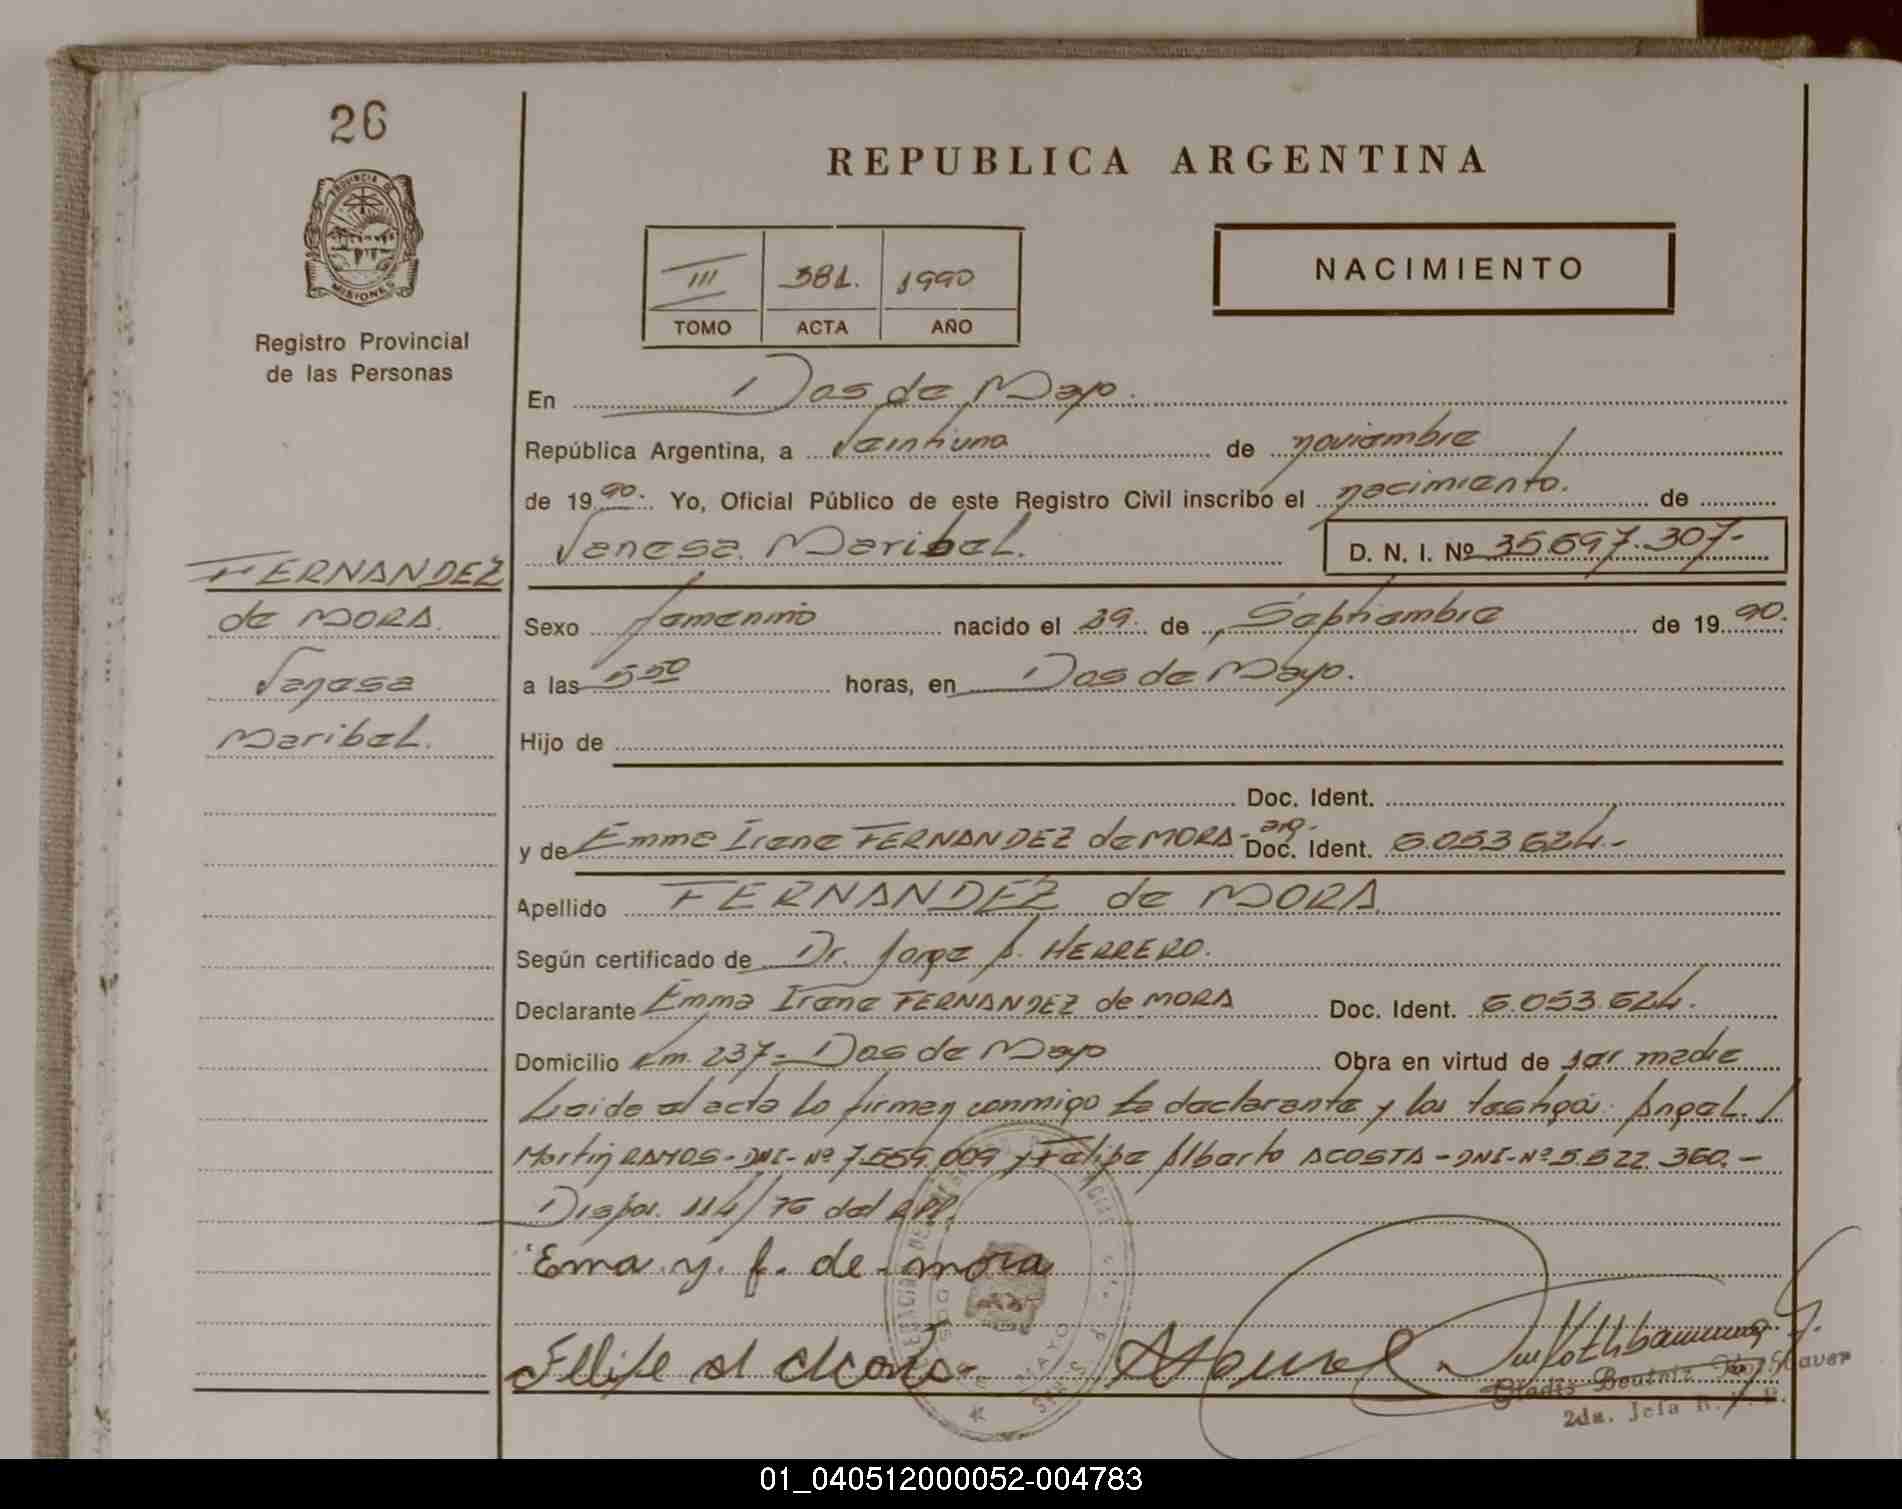 26
PROVINCIA DE
MISIONES
Registro Provincial
de las Personas
FERNANDEZ
de MORA.
Vanesa
Maribel.
REPUBLICA ARGENTINA
III 381. 1990
TOMO ACTA AÑO
NACIMIENTO
En Dos de Mayo.
República Argentina, a Veintiuno de noviembre
de 1990. Yo, Oficial Público de este Registro Civil inscribo el nacimiento. de
Vanesa Maribel. D. N. I. Nº 35.697.307-
Sexo femenino nacido el 29. de Septiembre de 1990.
a las 5 50 horas, en Dos de Mayo.
Hijo de
Doc. Ident.
y de Emma Irene FERNANDEZ de MORA- arg.- Doc. Ident. 6.053.624.-
Apellido FERNANDEZ de MORA
Según certificado de Dr. Jorge A. HERRERO.
Declarante Emma Irene FERNANDEZ de MORA Doc. Ident. 6.053.624.
Domicilio Km. 237- Dos de Mayo Obra en virtud de ser madre
Leida el acta lo firman conmigo la declarante y los testigos: Angel
Martin RAMOS - DNI-Nº 7.559.009 y Felipe Alberto ACOSTA - DNI-Nº 5.522.360.-
Dispos. 114/76 del RPP.
Ema y. f. de mora
DOS DE MAYO
Gladis Beatriz
2da. Jefa R.
01_040512000052-004783